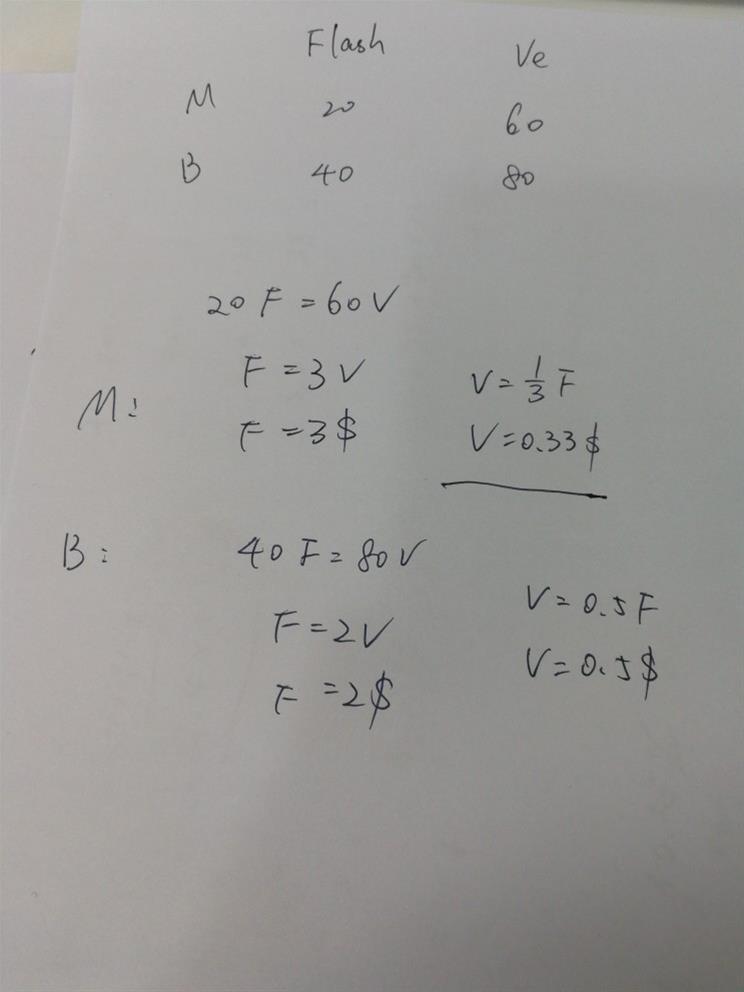 Flash Ve
M 20 60
B 40 80
20 F = 60 V
F = 3 V V = 1/3 F
M:
F = 3 $ V = 0.33 $
B: 40 F = 80 V
V = 0.5 F
F = 2 V
V = 0.5 $
F = 2 $